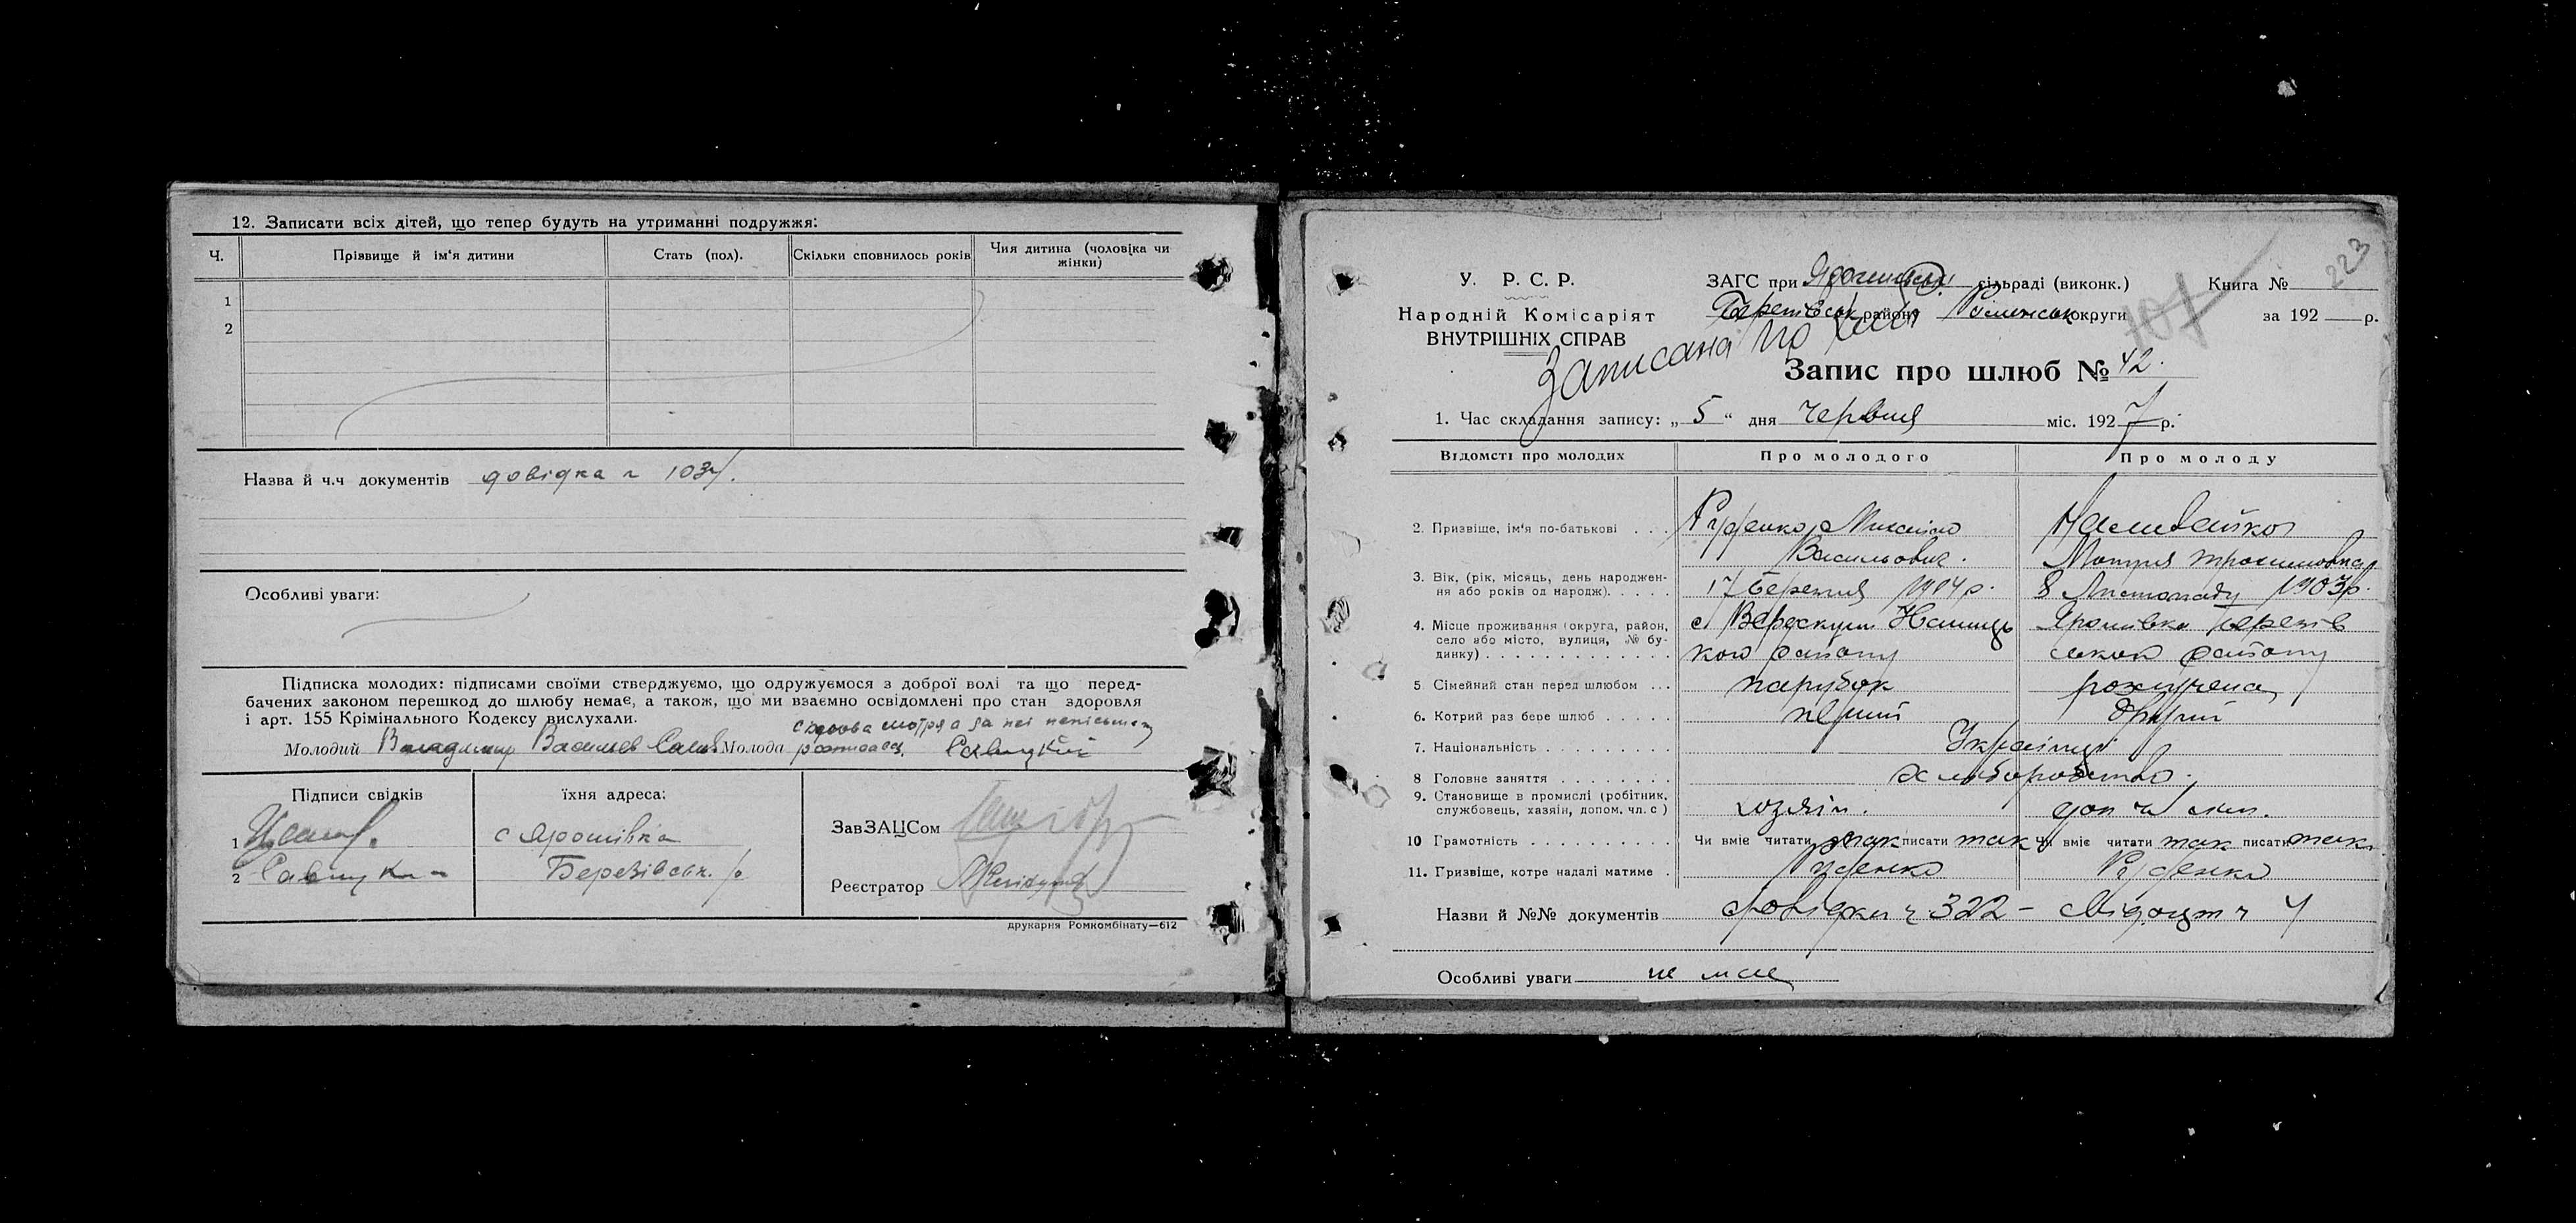 12. Записати всіх дітей, що тепер будуть на утриманні подружжя:
Ч. Прізвище й ім'я дитини Стать (пол). Скільки сповнилось років Чия дитина (чоловіка чи жінки)
1
2
Назва й ч.ч документів довідка ч 103
Особливі уваги:
Підписка молодих: підписами своїми стверджуємо, що одружуємося з доброї волі та що перед-
бачених законом перешкод до шлюбу немає, а також, що ми взаємно освідомлені про стан здоровля
і арт. 155 Крімінального Кодексу вислухали.
мотря а за неї неписьмен
Молодий Владимир Васильев Молода розписався Савицкий
Підписи свідків їхня адреса:
ЗавЗАЦСом
1 с Ярошівка
2 Березівськ. р
Реєстратор
друкарня Ромкомбінату—612
223
У. Р. С. Р.
Народній Комісаріят
ВНУТРІШНІХ СПРАВ
ЗАГС при сільраді (виконк.) Книга №
Березівськ району Роменськ округи за 192 р.
107
Записана по
Запис про шлюб № 42.
1. Час складання запису: „ 5 “ дня червня міс. 1927 р.
Відомсті про молодих Про молодого Про молоду
2. Призвіще, ім'я по-батькові . . . Руденко Михайло Васильович. Наливайко Мотря Трохимовна
3. Вік, (рік, місяць, день народжен-
ня або років од народж). . . . . 17 Березня 1904 р. 8 Листопаду 1903 р.
4. Місце проживання (округа, район,
село або місто, вулиця, № бу-
динку) . . . . . . . . . . . . . с кого району Ярошівка Березів ськой району
5 Сімейний стан перед шлюбом ... парубок розлучена
6. Котрий раз бере шлюб . . . . . перший другий
7. Національність . . . . . . . . . Українці
8. Головне заняття . . . . . . . . хліборобство.
9. Становище в промислі (робітник,
службовець, хазяїн, допом. чл. с) хозяїн. доп чл сім.
10 Грамотність . . . . . . . . . . Чи вміє читати так писати так Чи вміє читати так писати так
11. Гризвіще, котре надалі матиме . Руденко Руденко
Назви й №№ документів довідки ч 322 –
Особливі уваги не має